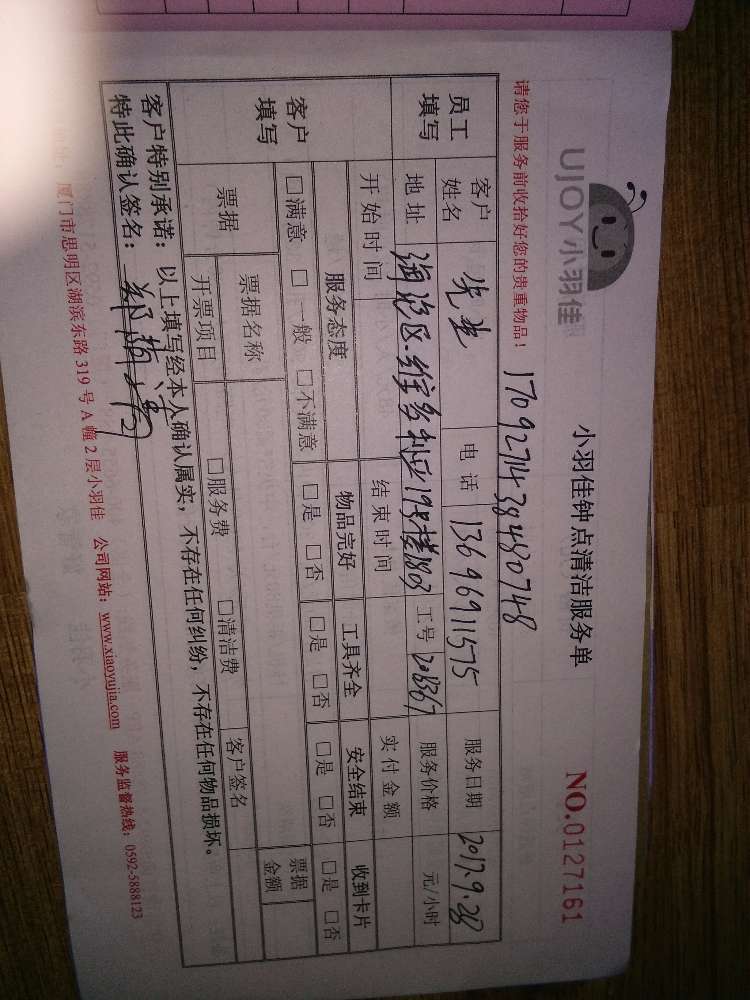 UJOY小羽佳
小羽佳钟点清洁服务单
NO.0127161
请您于服务前收拾好您的贵重物品！
17092714384480748
员工填写
客户姓名 先生 电话 13696911575 服务日期 2017.9.28
地址 海沧区·维多利亚19号楼1803 工号 208367 服务价格 元/小时
开始时间 结束时间 实付金额
客户填写
服务态度 物品完好 工具齐全 安全结束 收到卡片
□满意 □一般 □不满意 □是 □否 □是 □否 □是 □否 □是 □否
票据 票据名称 客户签名 票据金额
开票项目 □服务费 □清洁费
客户特别承诺：以上填写经本人确认属实，不存在任何纠纷，不存在任何物品损坏。
特此确认签名：
厦门市思明区湖滨东路319号A幢2层小羽佳 公司网站：www.xiaoyujia.com 服务监督热线：0592-5888123